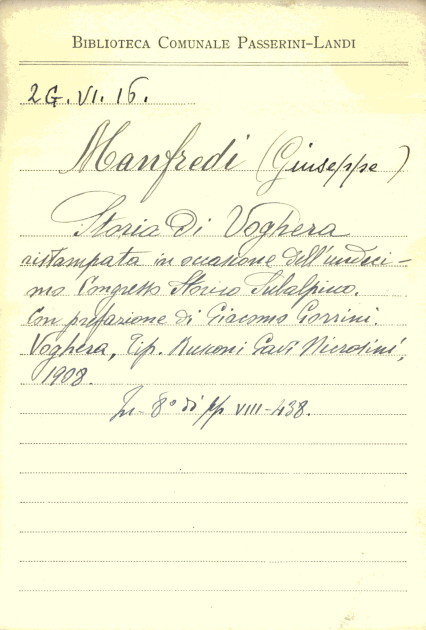 BIBLIOTECA COMUNALE PASSERINI-LANDI
2G. VI. 16.
Manfredi (Giuseppe)
Storia di Voghera
ristampata in occasione dell'undeci-
mo Congresso Storico Subalpino.
Con prefazione di Giacomo Gorrini.
Voghera, Tip. Rusconi Gavi Nicrosini,
1908.
In-8° di pp VIII-438.